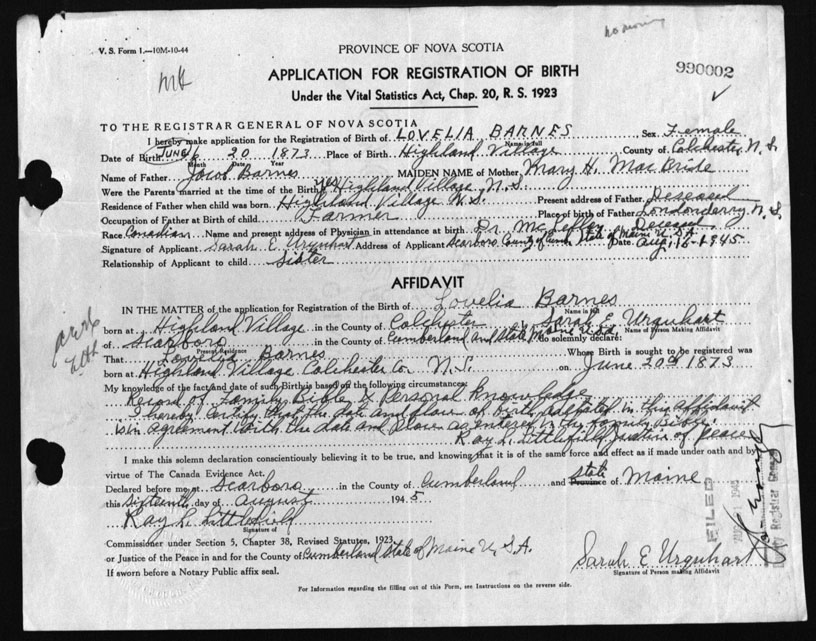 no money
V. S. Form 1.—10M-10-44
PROVINCE OF NOVA SCOTIA
990002
APPLICATION FOR REGISTRATION OF BIRTH
Under the Vital Statistics Act, Chap. 20, R. S. 1923
TO THE REGISTRAR GENERAL OF NOVA SCOTIA
I hereby make application for the Registration of Birth of LOVELIA BARNES Sex Female
Name in full
Date of Birth JUNE 6 20 1873 Place of Birth Highland Village County of Colchester, N.S.
Month Date Year
Name of Father Jacob Barnes MAIDEN NAME of Mother Mary H. MacBride
Were the Parents married at the time of the Birth yes Highland Village, N.S.
Residence of Father when child was born Highland Village N.S. Present address of Father Deseased
Occupation of Father at Birth of child Farmer Place of birth of Father Londonderry, N.S.
Race Canadian Name and present address of Physician in attendance at birth Dr. Deseased
Signature of Applicant Sarah E. Urquhart Address of Applicant Scarboro County of Cumb. State of Maine U.S.A. Date Aug. 16-1945
Relationship of Applicant to child Sister
AFFIDAVIT
IN THE MATTER of the application for Registration of the Birth of Lovelia Barnes
Name in full
born at Highland Village in the County of Colchester, Sarah E. Urquhart
Name of Person Making Affidavit
of Scarboro in the County of Cumberland and State of Maine U.S.A. do solemnly declare:
Present Residence
That Lovelia Barnes Whose Birth is sought to be registered was
born at Highland Village Colchester Co. N.S. on June 20th 1873
My knowledge of the fact and date of such Birth is based on the following circumstances:
Record of Family Bible & Personal knowledge
I hereby certify that the date and place of birth as stated in this affidavit
is in agreement with the date and place as entered in the family Bible.
Ray L. Littlefield, Justice of Peace
I make this solemn declaration conscientiously believing it to be true, and knowing that it is of the same force and effect as if made under oath and by
virtue of The Canada Evidence Act.
Declared before me at Scarboro in the County of Cumberland and State Province of Maine
this sixteenth day of August 1945
Ray L. Littlefield
Signature of
Commissioner under Section 5, Chapter 38, Revised Statutes, 1923
or Justice of the Peace in and for the County of Cumberland State of Maine U.S.A.
If sworn before a Notary Public affix seal.
Sarah E Urquhart
Signature of Person making Affidavit
For Information regarding the filling out of this Form, see Instructions on the reverse side.
FILED